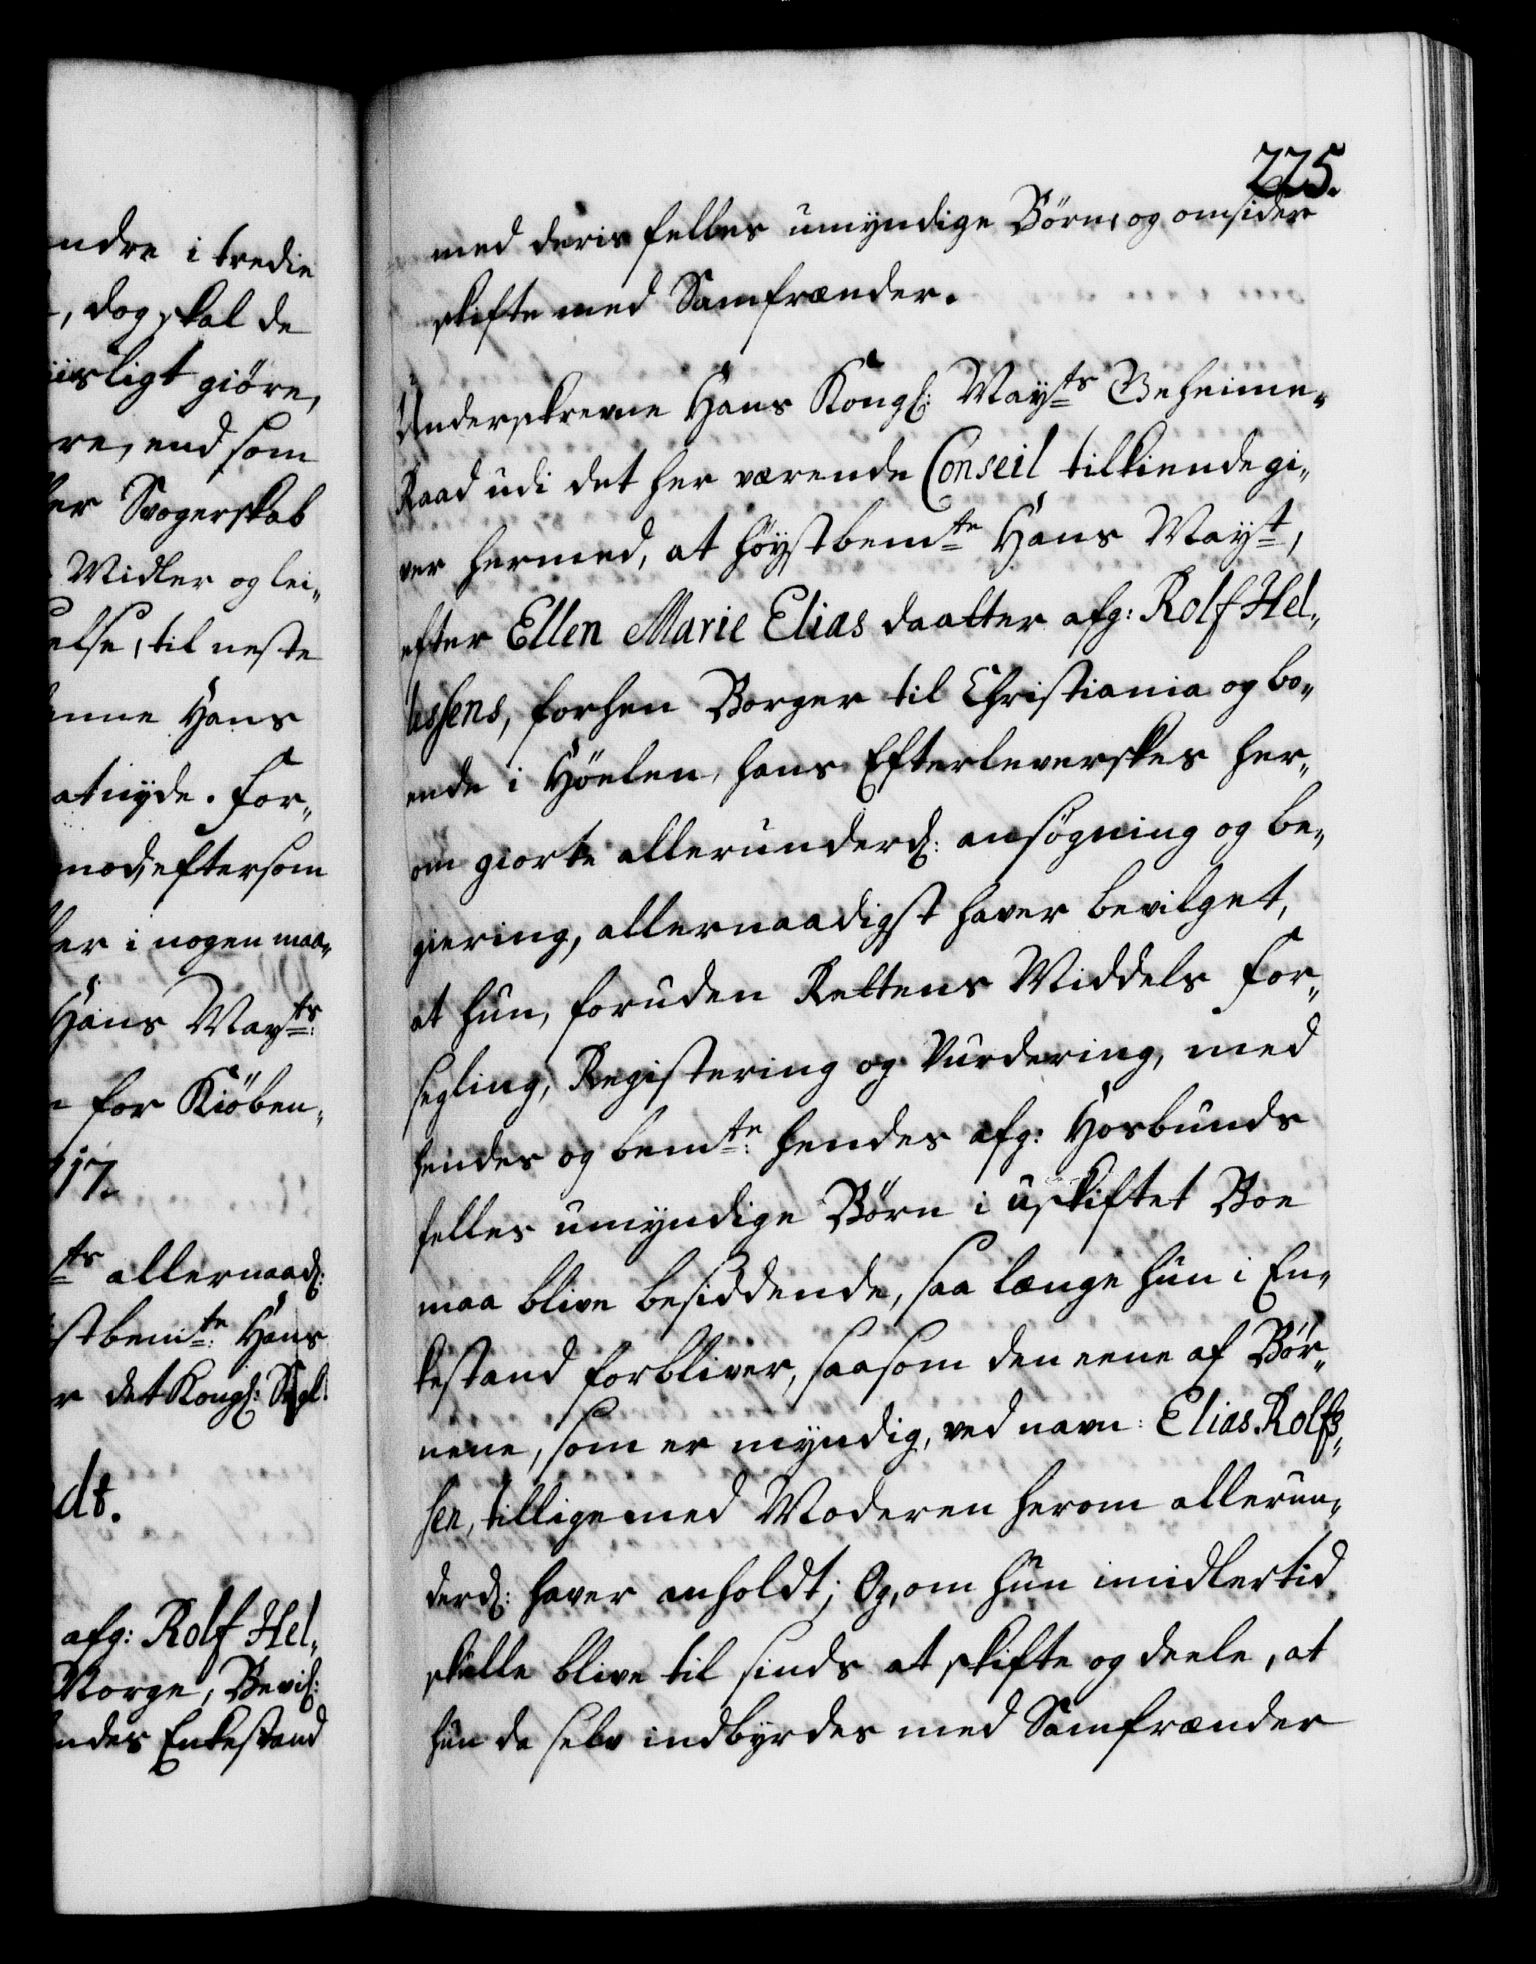 ndre i tredie
, dog skal de
iisligt giöre,
re, end som
er Svogerskab
Midler og lei„
else, til neste
nne Hans
at nyde. For„
mod, eftersom
er i nogen maa„
Hans Mayts
for Kiöben„
17.
ts allernaad:
stbemte: Hans
r det Kongl: Segl:
dt.
afg: Rolf Hel„
Norge, Bevil:
ndes Enkestand
225.
med deris felles umyndige Börn, og omsider
skifte med Samfrænder.
Underskrevne Hans Kongl: Mayts Geheime„
Raad udi det her værende Conseil tilkiende gi„
ver hermed, at höystbemte Hans Mayt,
efter Ellen Marie Elias daatter afg: Rolf Hel„
lesens, forhen Borger til Christiania og bo„
ende i Höelen, hans Efterleverskes her„
om giorte allerunderd: ansögning og be„
giering, allernaadigst haver bevilget,
at hun, foruden Rettens Middels for„
segling, Registering og Vurdering, med
hendes og bemte: hendes afg: Hosbunds
felles umyndige Börn i uskiftet Boe
maa blive besiddende, saa længe hun i En„
kestand forbliver, saasom den eene af Bör„
nene, som er myndig, ved navn: Elias Rolfs„
sen, tillige med Moderen herom allerun„
derd: haver anholdt; Og, om hun imidlertid
skulle blive til sinds at skifte og deele, at
hun da selv indbyrdes med Samfrænder